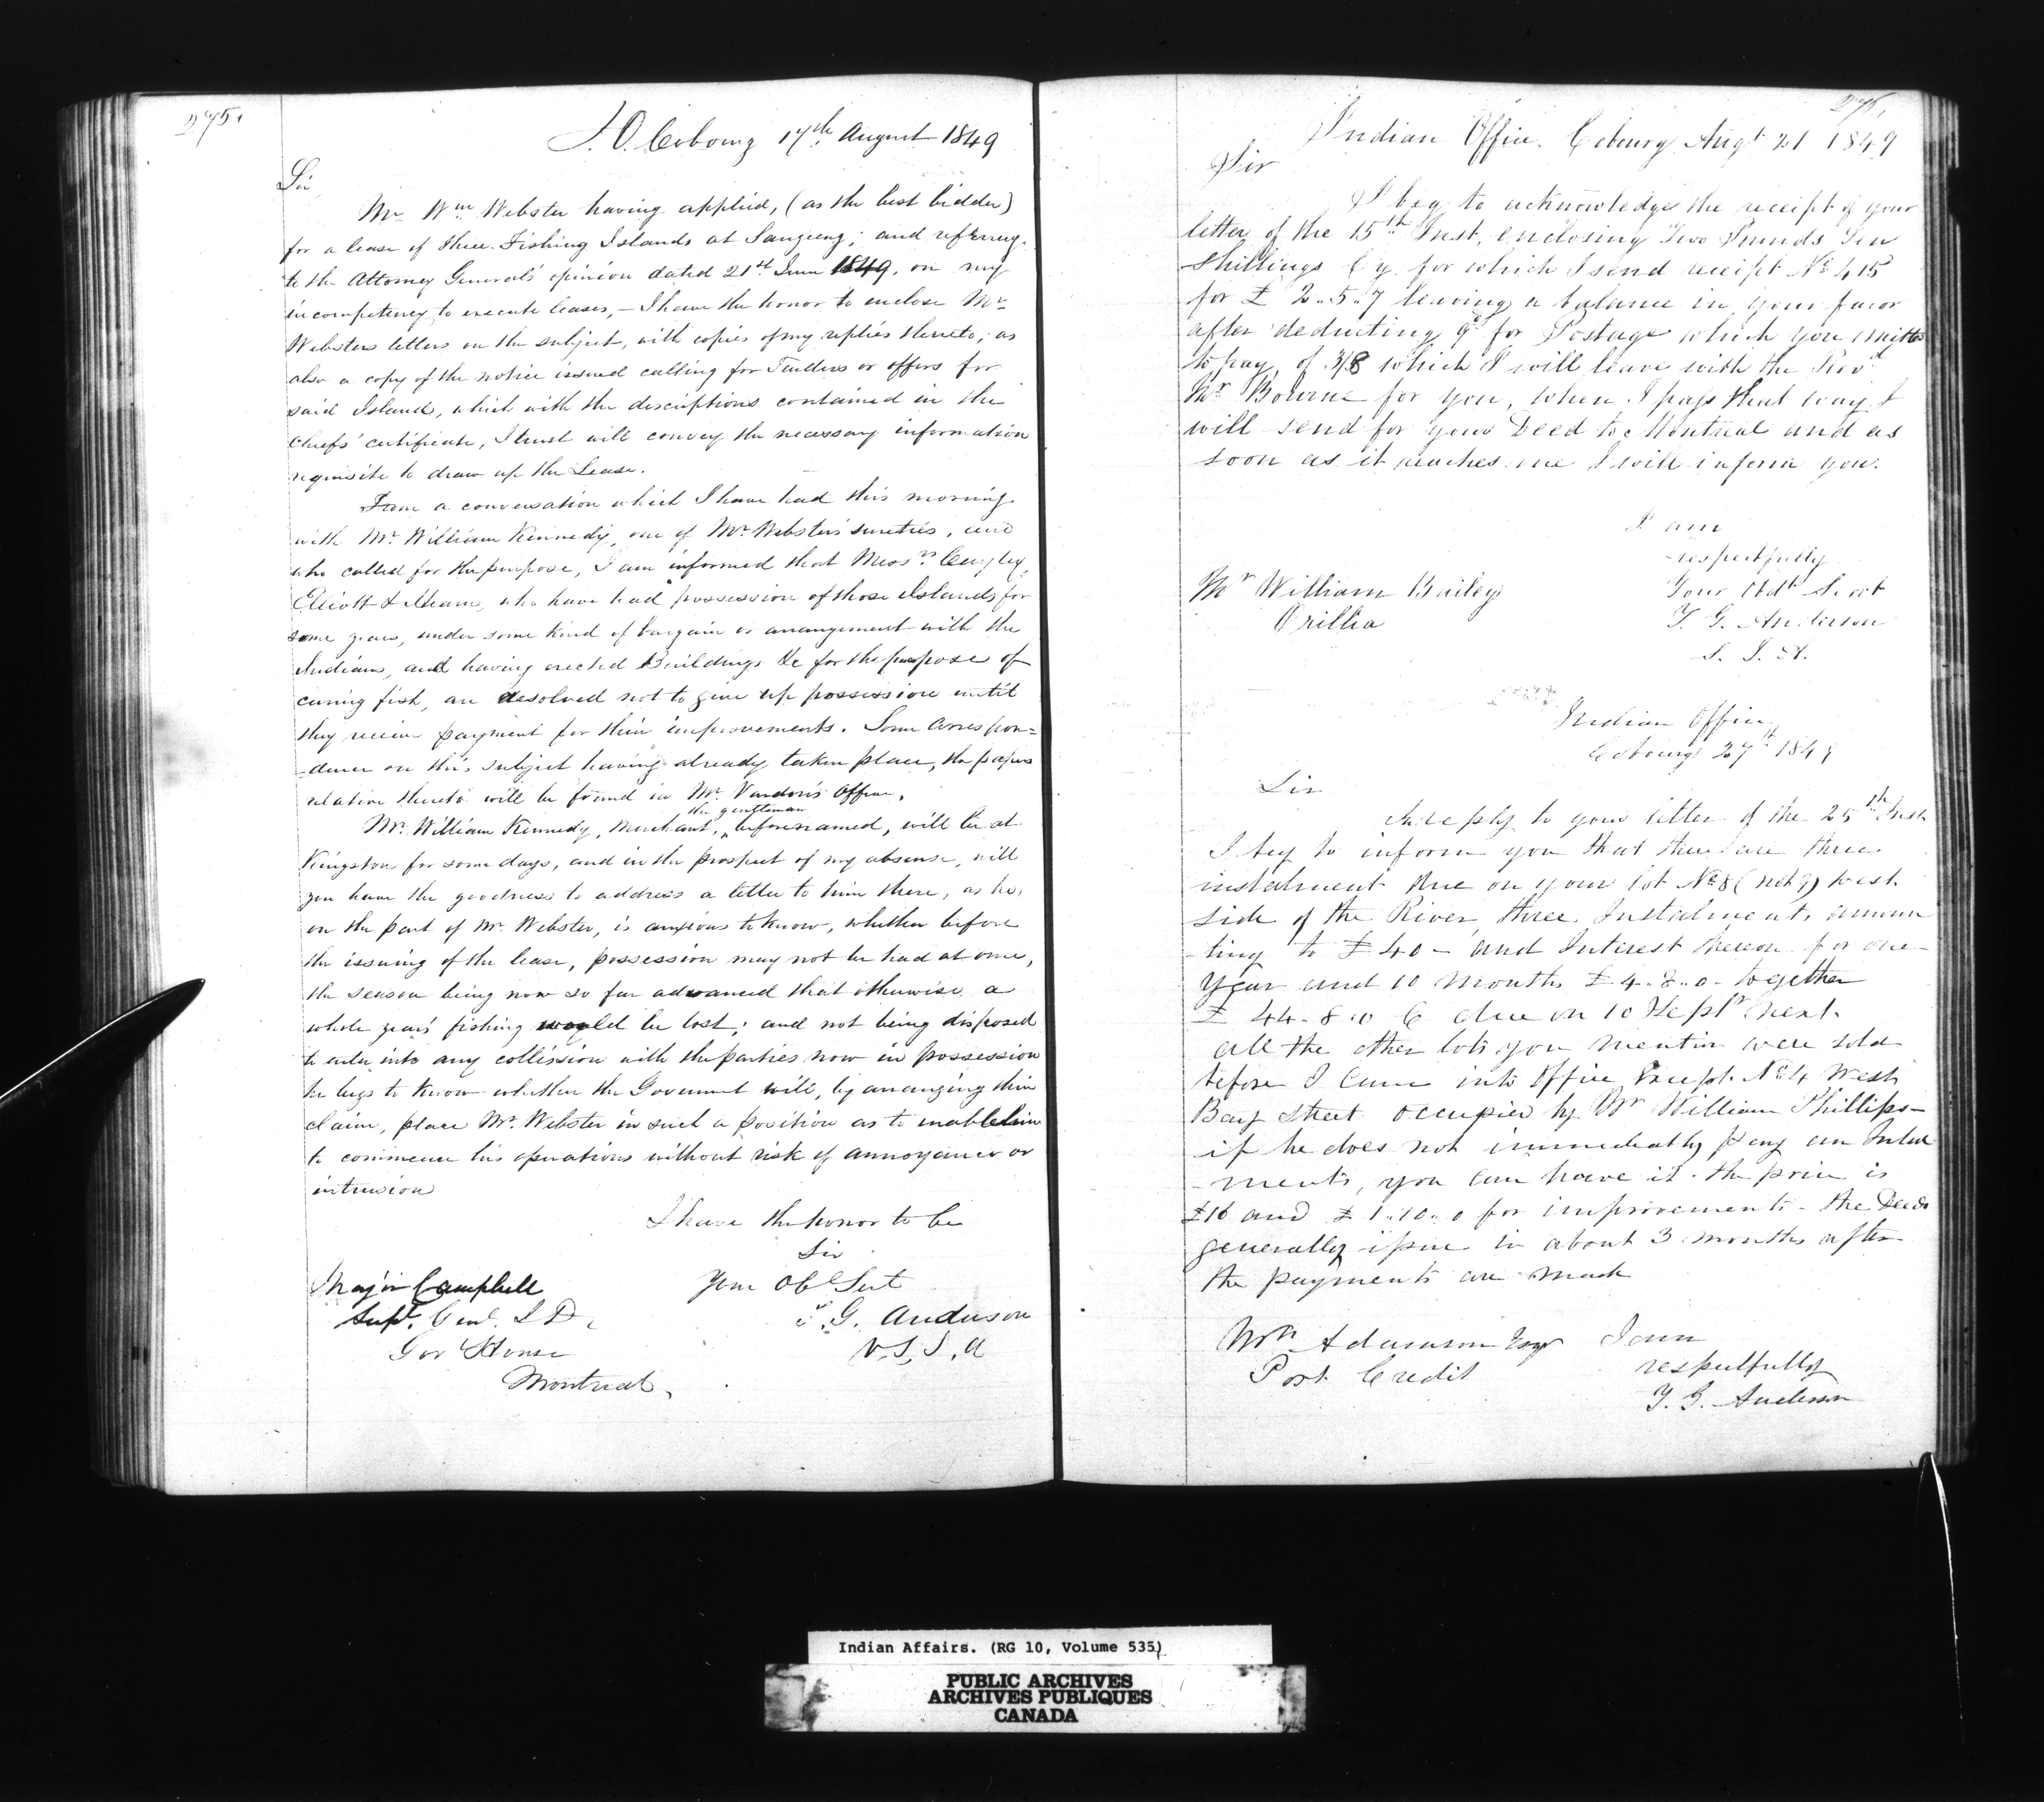 275.
I.O. Cobourg 17th August 1849
Sir
Mr Wm Webster having applied, (as the best bidder)
for a lease of three Fishing Islands at Saugeeng; and referring
to the Attorney General's opinion dated 21st June 1849, on my
incompetency to execute leases, — I have the honor to enclose Mr
Websters letters on the subject, with copies of my replies thereto; as
also a copy of the notice issued calling for Tenders or offers for
said Island, which with the descriptions contained in the
Chiefs' certificate, I trust will convey the necessary information
requisite to draw up the Lease.
From a conversation which I have had this morning
with Mr William Kennedy, one of Mr Webster's sureties, and
who called for the purpose, I am informed that Messrs
Elliott & who have had possession of those Islands for
some years, under some kind of bargain or arrangement with the
Indians, and having erected Buildings &c for the purpose of
curing fish, are resolved not to give up possession until
they receive payment for their improvements. Some Correspon=
-dence on this subject having already taken place, the papers
relative thereto will be found in Mr Office.
the gentleman
Mr William Kennedy, Merchant, beforenamed, will be at
Kingston for some days, and in the prospect of my absense, will
you have the goodness to address a letter to him there, as he,
on the part of Mr Webster, is anxious to know, whether before
the issuing of the lease, possession may not be had at once,
the season being now so far advanced that otherwise a
whole years' fishing would be lost; and not being disposed
to enter into any collission with the parties now in possession
he begs to know whether the Government will, by arranging their
claim, place Mr Webster in such a position as to enable him
to commence his operations without risk of annoyance or
intrusion
I have the honor to be
Sir
Your Obt Sert
T. G. Anderson
V. S. I. A
Major Campbell
Supt. Genl. I D.
Gov House
Montreal.
275,
Indian Office. Cobourg Augt 21 1849
Sir
I beg to acknowledge the receipt of your
letter of the 15th Inst, enclosing Two Pounds Ten
Shillings Cy. for which I send receipt No 415
for £ 2..5..7 leaving a balance in your favor
after deducting 9d for Postage which you omitted
to pay, of 3/8 which I will leave with the Revd
Mr Bourne for you, when I pass that way. I
will send for your Deed to Montreal and as
soon as it reaches me I will inform you.
I am
respectfully
Your Obdt Servt
T. G. Anderson
S. I. A.
Mr William Bailey
Orillia
Indian Office
Cobourg 27th 1849
Sir
In reply to your letter of the 25th Inst
I beg to inform you that there are three
instalment due on your lot No 8 (not 7) West
side of the River, three Instalments amoun
-ting to £ 40 - and Interest thereon for one
Year and 10 Months £ 4..8..0 together
£ 44-8-0 C due on 10 Septr next.
all the other lots you mention were sold
before I came into Office Except No 4 West
Bay Street occupied by Mr William Phillips—
if he does not immediately pay an Instal
-ments, you can have it - the price is
£10 and £ 1..10..0 for improvements - the Deeds
generally issue in about 3 months after
the payments are made
I am
respectfully
T. G. Anderson
Wm Adamson Esqr
Port Credit
Indian Affairs. (RG 10, Volume 535)
PUBLIC ARCHIVES
ARCHIVES PUBLIQUES
CANADA